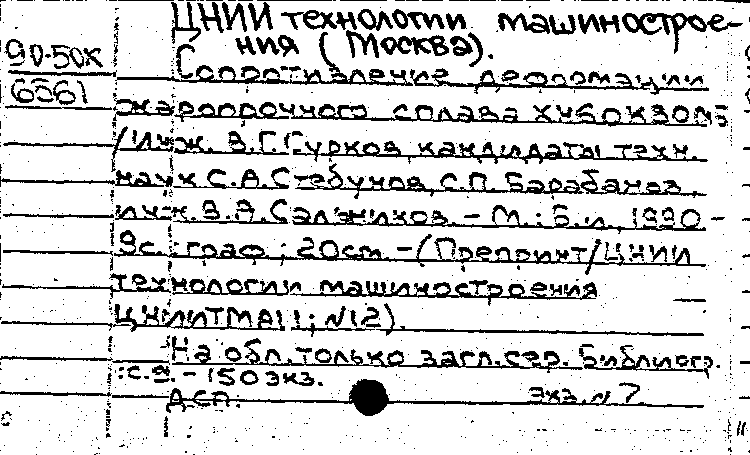 ЦНИИ технологии машинострое-
ния (Москва).
90-50к
6561
Сопротивление деформации
жаропрочного сплава ХН60К30МБ
/Инж. В.Г. Сурков, кандидаты техн.
наук С.А. Стебунов, С.П. Барабанов,
инж. В.А. Сальников. - М.: Б.и., 1990 -
9с.: граф; 20см. - (Препринт/ЦНИИ
технологии машиностроения
ЦНИИТМАШ; №12).
На обл. только загл. сер. Библиогр.
: с. 9. - 150 экз.
ДСП. Экз. № 7